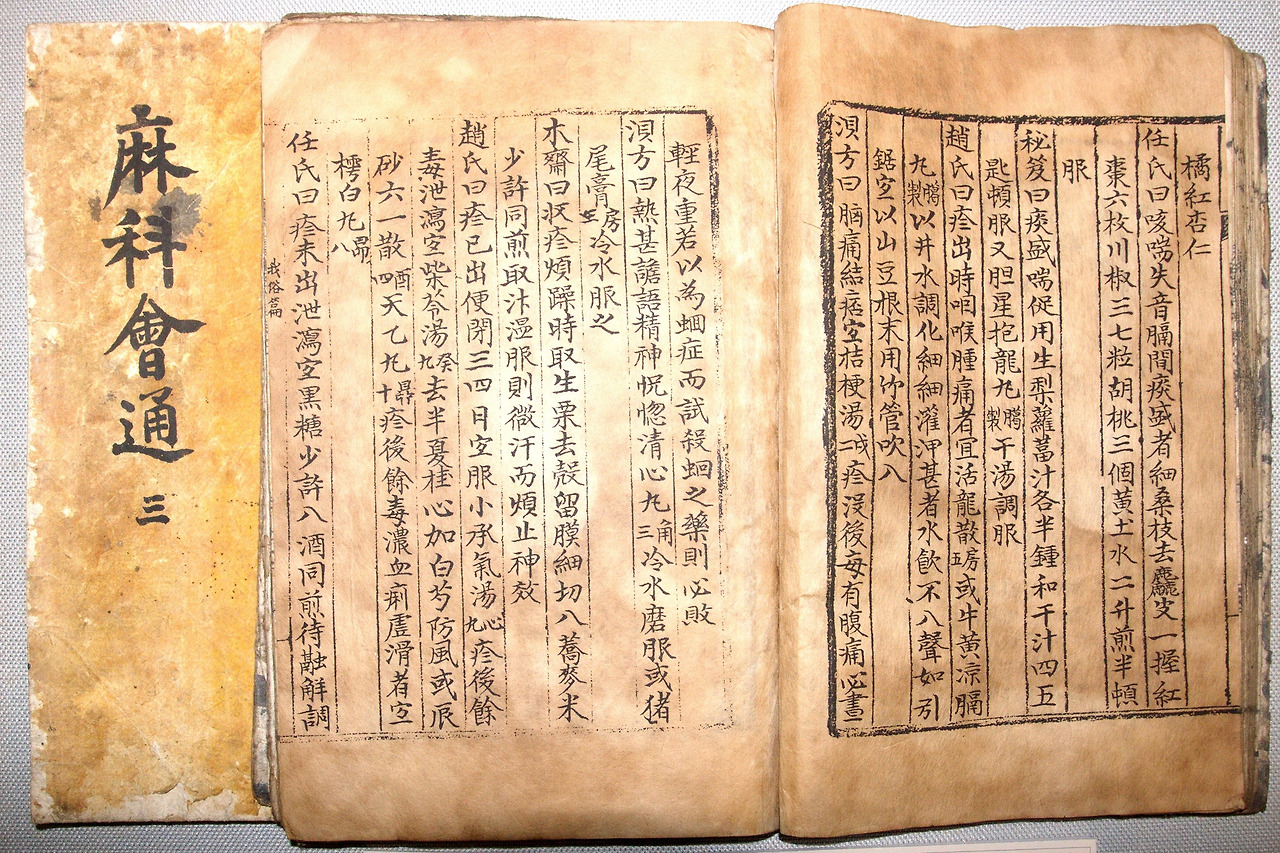 橘紅杏仁
任氏曰咳喘失音膈間痰盛者細桑枝去麤皮一握紅
棗六枚川椒三七粒胡桃三個黃土水二升煎半頓
服
秘笈曰痰盛喘促用生梨蘿葍汁各半鍾和干汁四五
匙頓服又胆星抱龍九臈製干湯調服
趙氏曰疹出時咽喉腫痛者宜活龍散五房或牛黃凉膈
九臈製以井水調化細細灌之甚者水飮不入聲如引
鋸宜以山豆根末用竹管吹入
湏方曰腦痛結痣宜桔梗湯二戌疹沒後每有腹痛必晝
輕夜重若以為蛔症而試殺蛔之藥則必敗
湏方曰熱甚譫語精神怳惚淸心丸三角冷水磨服或猪
尾膏房冷水服之
木齋曰收疹煩躁時取生栗去殼留膜細切入蕎麥米
少許同煎取汁溫服則微汗而煩止神效
趙氏曰疹已出便閉三四日宜服小承氣湯九心疹後餘
毒泄瀉宜柴苓湯九癸去半夏桂心加白芍防風或辰
砂六一散四酉天乙丸十鼎疹後餘毒濃血痢虛滑者宜
樗白丸八鼎
任氏曰疹未出泄瀉宜黑糖少許入酒同煎待融解調
麻科會通
三